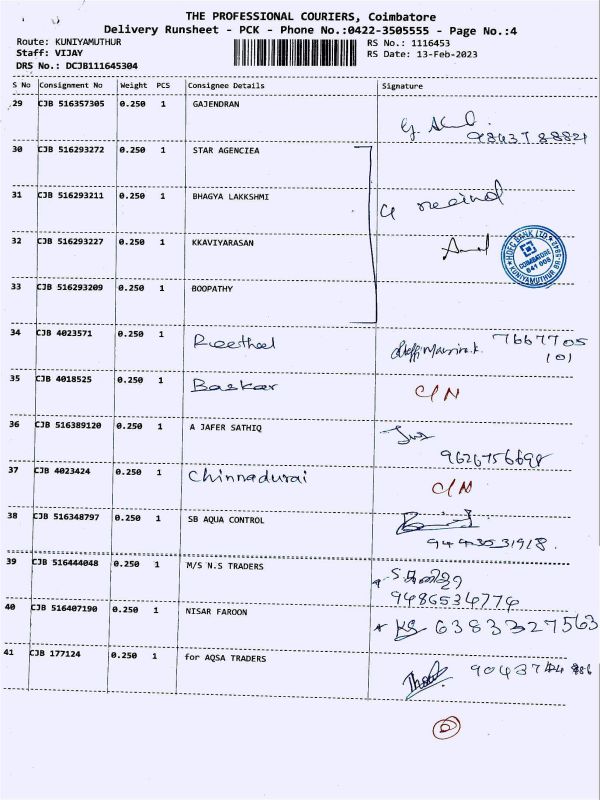 THE PROFESSIONAL COURIERS, Coimbatore
Delivery Runsheet - PCK - Phone No.:0422-3505555 - Page No.:4
Route: KUNIYAMUTHUR
RS No.: 1116453
Staff: VIJAY
RS Date: 13-Feb-2023
DRS No.: DCJB111645304
S No Consignment No Weight PCS Consignee Details Signature
29 CJB 516357305 0.250 1 GAJENDRAN
9843788821
30 CJB 516293272 0.250 1 STAR AGENCIEA
31 CJB 516293211 0.250 1 BHAGYA LAKKSHMI
4 received
32 CJB 516293227 0.250 1 KKAVIYARASAN
HDFC BANK LTD
COIMBATORE
641 008
KUNIYAMUTHUR BR
33 CJB 516293209 0.250 1 BOOPATHY
34 CJB 4023571 0.250 1 Reethal 7667705
101
35 CJB 4018525 0.250 1 Baskar C/N
36 CJB 516389120 0.250 1 A JAFER SATHIQ
9626756698
37 CJB 4023424 0.250 1 Chinnadurai C/N
38 CJB 516348797 0.250 1 SB AQUA CONTROL
9443531918.
39 CJB 516444048 0.250 1 M/S N.S TRADERS
9486534774
40 CJB 516407190 0.250 1 NISAR FAROON
KS 6383327563
41 CJB 177124 0.250 1 for AQSA TRADERS